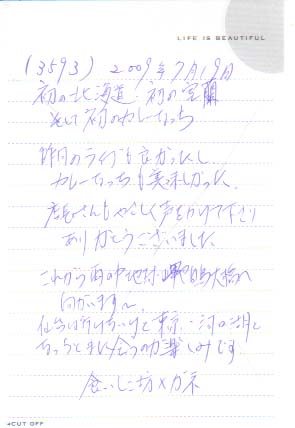 LIFE IS BEAUTIFUL
(3593) 2009年7月19日
初の北海道 初の室蘭
そして初のカレーなっち
昨日のライブも良かったし
カレーなっちも美味しかった。
店長さんもやさしく声をかけて下さり
ありがとうございました
これから雨の中地球岬 白鳥大橋へ
向かいます〜
仙台は行けないけど東京、河口湖と
なっちと共に会うのが楽しみです
食いしん坊×
◂CUT OFF